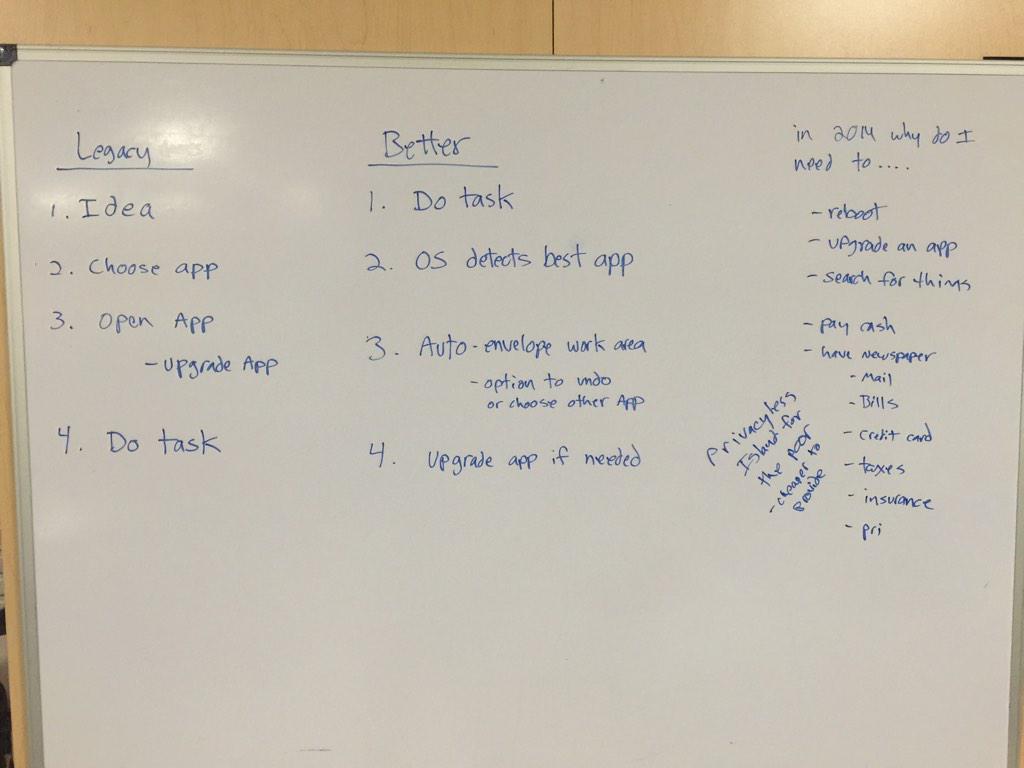 Legacy
1. Idea
2. Choose app
3. Open App
- Upgrade App
4. Do task
Better
1. Do task
2. OS detects best app
3. Auto-envelope work area
- option to undo
or choose other App
4. Upgrade app if needed
in 2014 why do I
need to....
- reboot
- upgrade an app
- search for things
- pay cash
- have newspaper
- Mail
- Bills
- credit card
- taxes
- insurance
- pri
privacyless
Island for
the poor
- cheaper to
provide